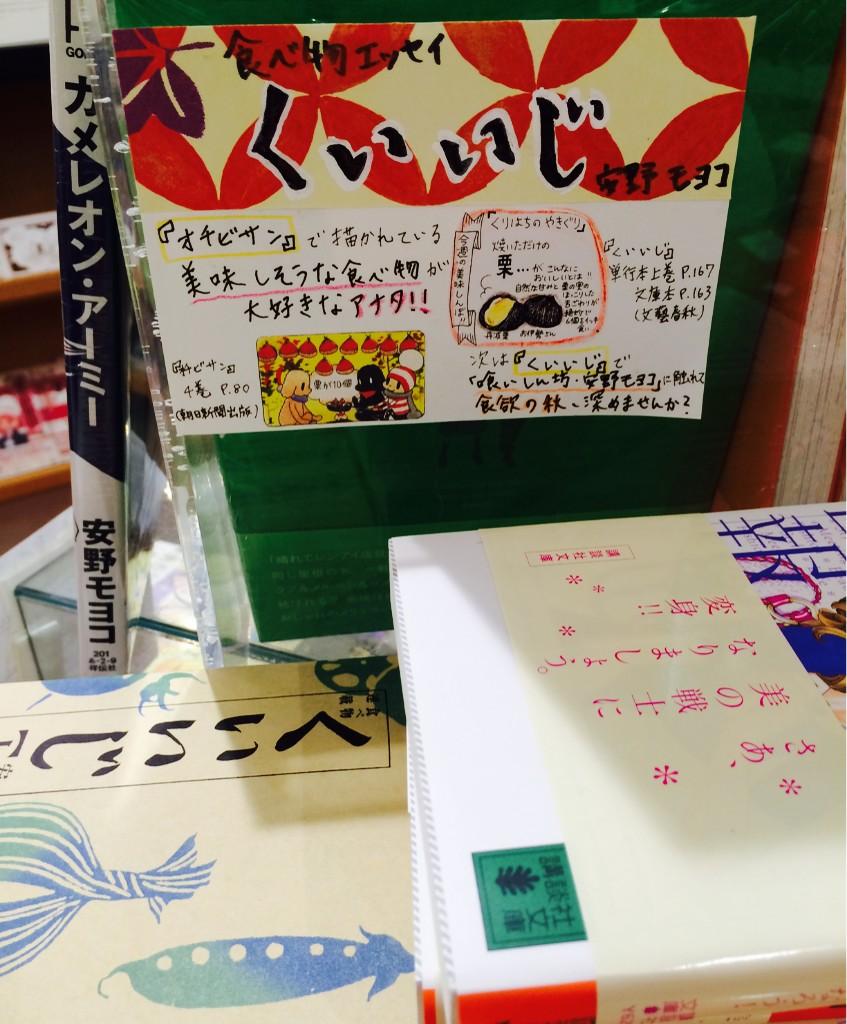 食べ物エッセイ
くいいじ
安野モヨコ
『オチビサン』で描かれている
美味しそうな食べ物が
大好きなアナタ!!
『オチビサン』
4巻 P.80
(朝日新聞出版)
栗が10個
『くりはちのやきぐり』
今週の美味しんぼ!
焼いただけの
栗…がこんなに
おいしいとは!!
自然な甘みと栗の実の
『くいいじ』
単行本上巻 P.167
文庫本 P.163
(文藝春秋)
次は『くいいじ』で
「喰いしん坊・安野モヨコ」に触れて
食欲の秋、深めませんか?
カメレオン・アーミー
安野モヨコ
201
6-2-9
祥伝社
食べ物連載
くいいじ
下
講談社文庫
さあ、
美の戦士に
なりましょう。
変身!!
講談社文庫